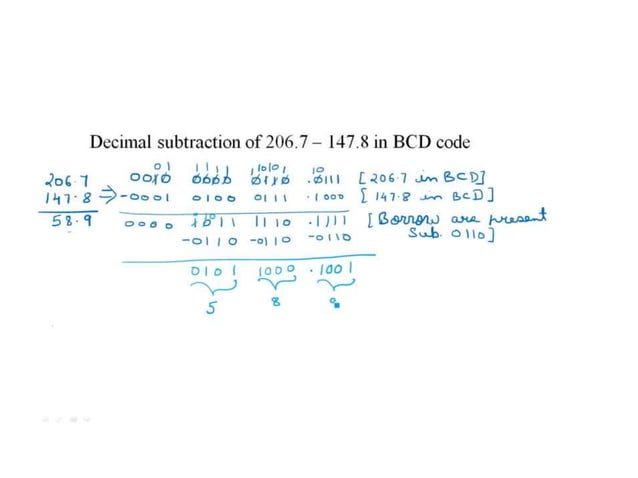 Decimal subtraction of 206.7 – 147.8 in BCD code
0 1 1 1 1 1 1 10 10 1 10
206.7 0010 0000 0110 .0111 [206.7 in BCD]
147.8 ⇒ -0001 0100 0111 .1000 [147.8 in BCD]
58.9 0000 1011 1110 .1111 [Borrow are present
-0110 -0110 -0110 Sub. 0110]
0101 1000 .1001
5 8 9